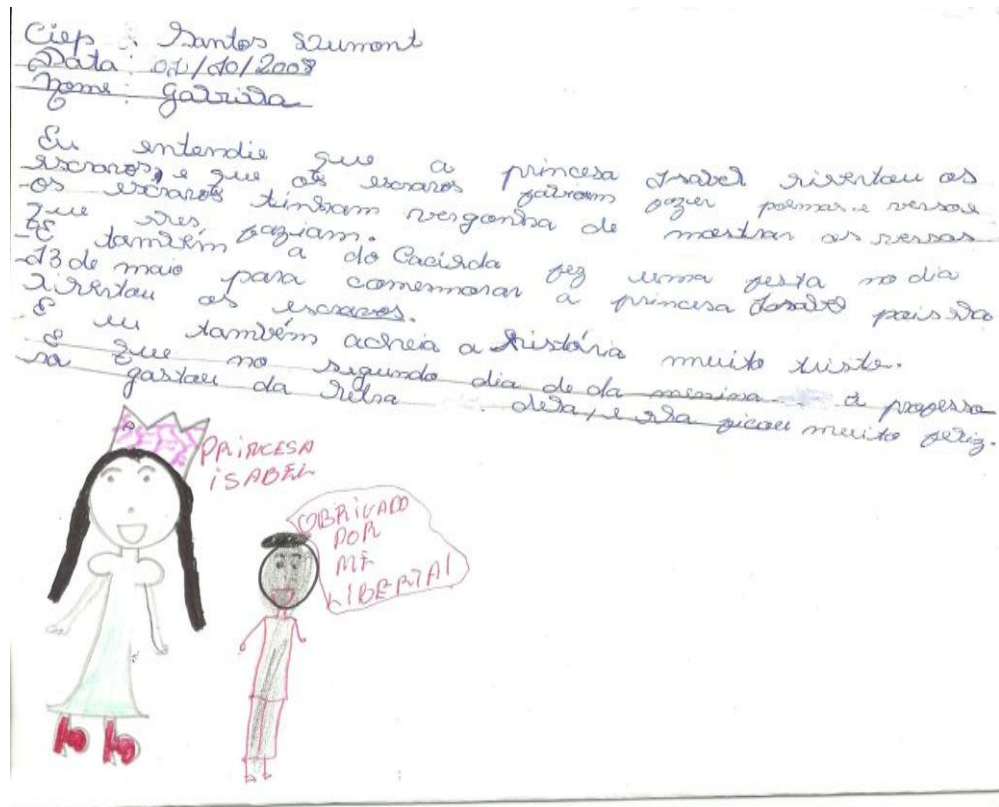 Ciep : Santos Dumont
Data : 01/10/2008
Nome : Gabriela
Eu entendie que a princesa Isabel libertou os
escravos, e que os escravos faziam poemas e versos
os escravos tinham vergonha de mostrar os versos
que eles faziam.
E também a do Cacilda fez uma festa no dia
13 de maio para comemorar a princesa Isabel pois ela
libertou os escravos.
E eu também achei a história muito triste.
E que no segundo dia de da menina a professo
ra gostou da dela, e ela ficou muito feliz.
PRINCESA
ISABEL
OBRIGADO
POR
ME
LIBERTAI